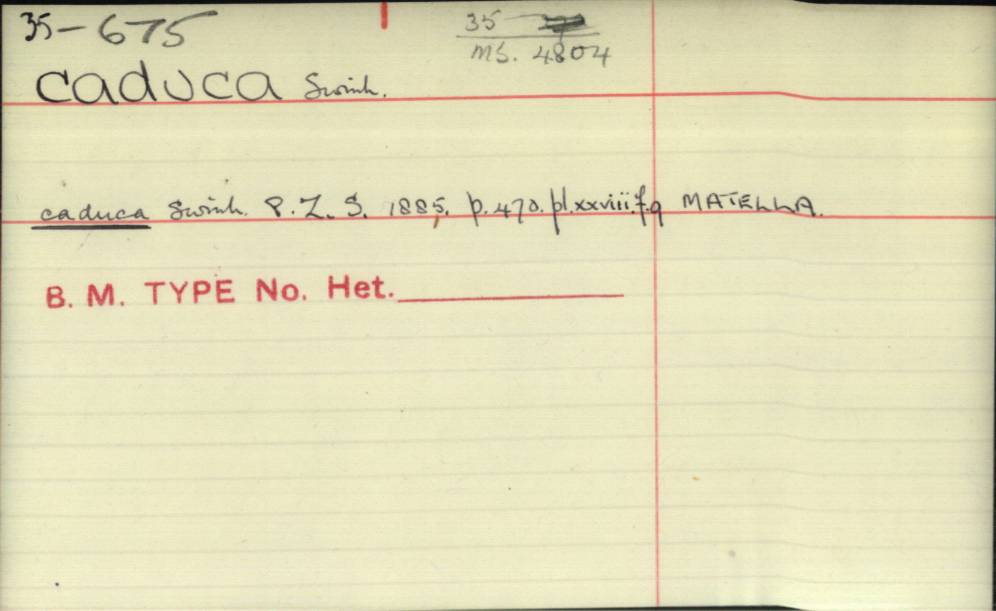 35-675
35
MS. 4804
caduca Swinh.
caduca Swinh. P.Z.S. 1885, p.470. pl.xxviii.f.9 MATELLA.
B. M. TYPE No. Het.